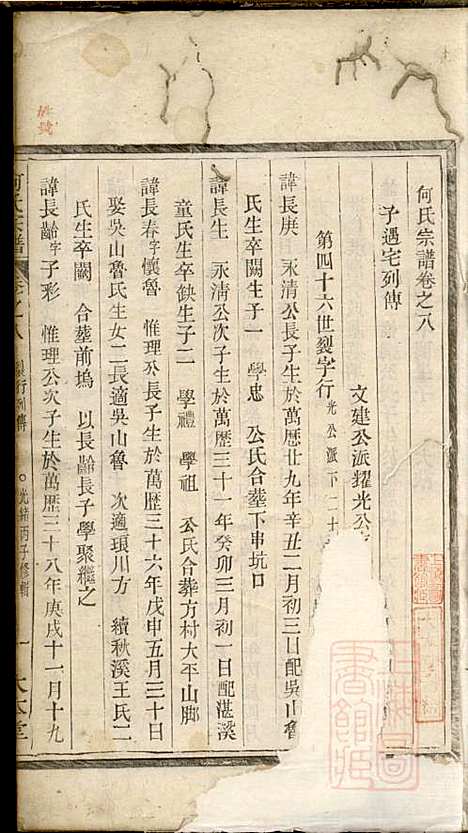 何氏宗譜卷之八
予遇宅列傳
文建公派耀光公
第四十六世裂字行光公派下二十
諱長庚 永清公長子生於萬歷廿九年辛丑二月初三日配吳山魯
氏生卒闕生子一 學忠 公氏合葬下串坑口
諱長生 永清公次子生於萬歷三十一年癸卯三月初一日配湛溪
童氏生卒缺生子二 學禮 學祖 公氏合葬方村大平山脚
諱長春字懷魯 惟理公長子生於萬歷三十六年戊申五月三十日
娶吳山魯氏生女二長適吳山魯 次適琅川方 續秋溪王氏二
氏生卒闕 合葬前塢 以長齡長子學聚繼之
諱長齡字子彩 惟理公次子生於萬歷三十八年庚戌十一月十九
何氏宗譜 卷之八 裂行列傳 ○光緒丙子修輯 一 大本堂